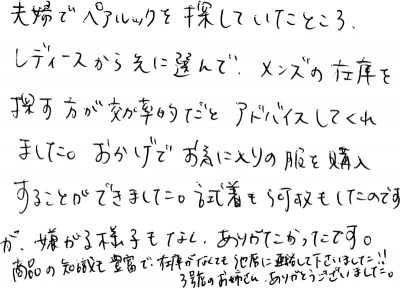 夫婦でペアルックを探していたところ、
レディースから先に選んで、メンズの在庫を
探す方が効率的だと アドバイスしてくれ
ました。おかげで お気に入りの服を購入
することができました。試着も何枚もしたのです
が、嫌がる様子もなし、ありがたかったです。
商品の知識も豊富で、在庫がなくても他店に連絡して下さいました!!
3号館のお姉さん、ありがとうございました。